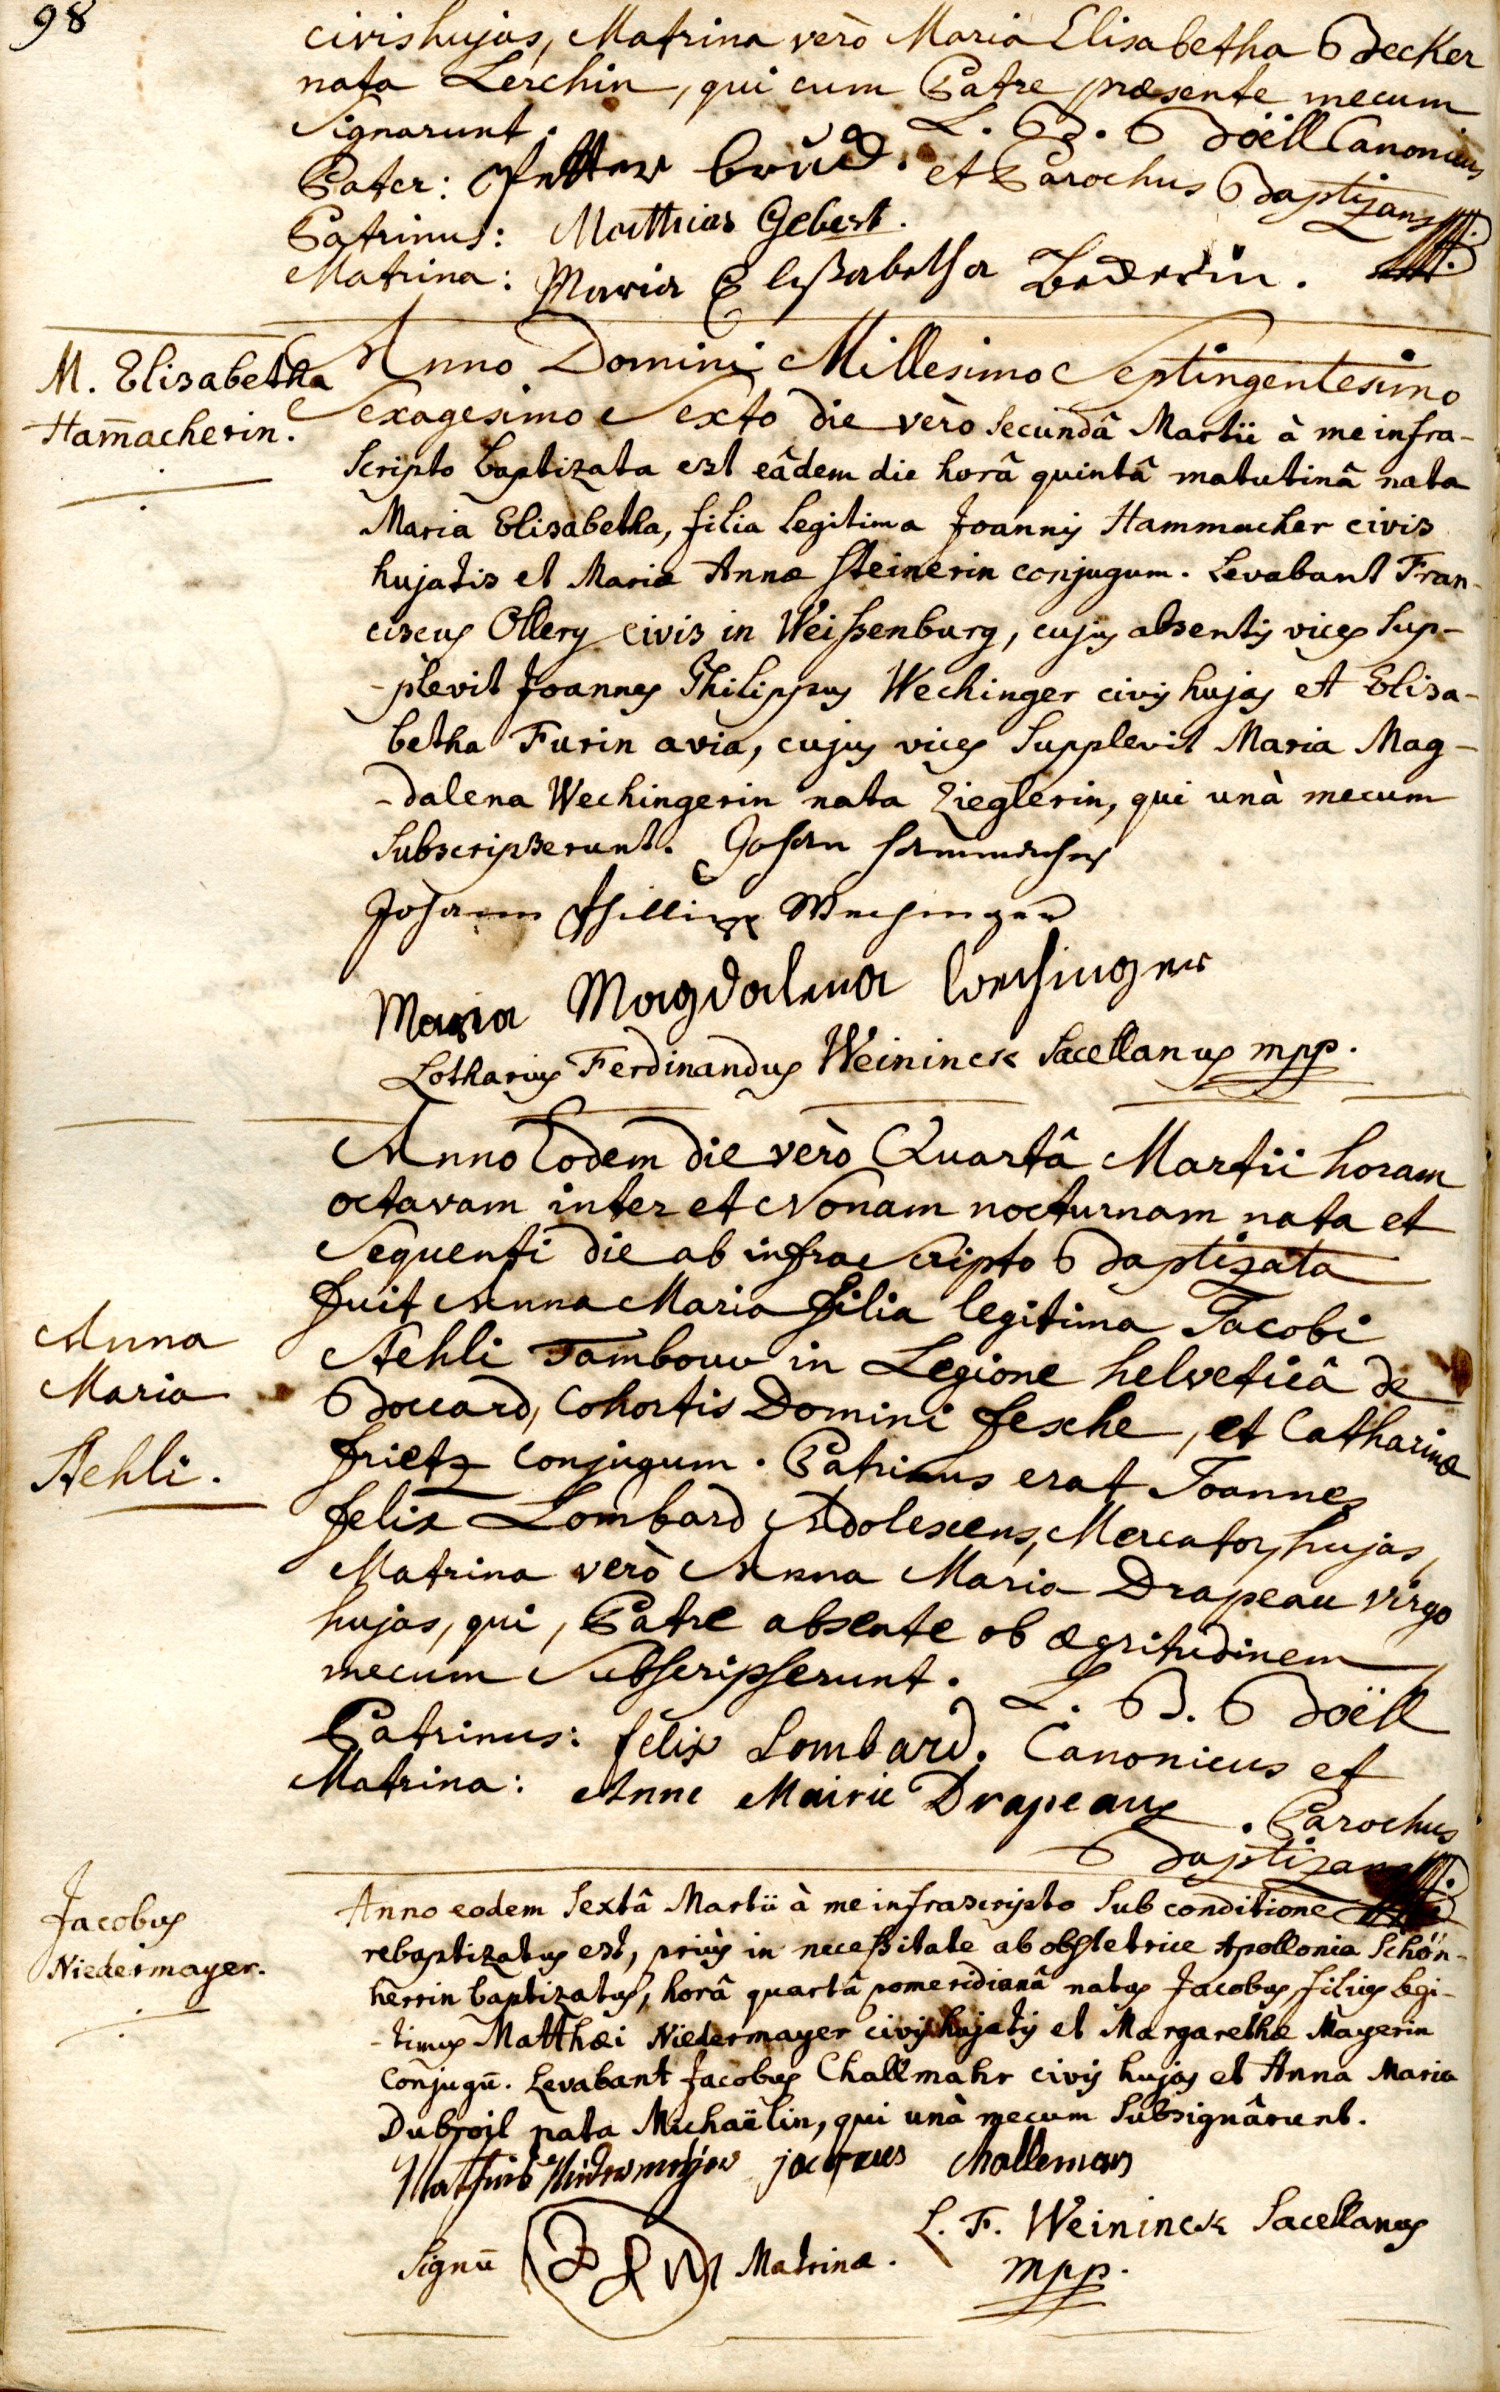 98
civis hujas, Matrina verò Maria Elisabetha Becker
nata Lerchin, qui cum Patre præsente mecum
Signarunt.
L. B. Böell Canonicus
Pater: Petter
et Parochus Baptizans
Patrinus: Matthias Gebert.
Matrina: Maria Elisabetha
M. Elisabetha
Ham̄acherin.
Anno Domini Millesimo Septingentesimo
Sexagesimo Sexto die verò secundâ Martii à me infra-
scripto baptizata est eâdem die horâ quintâ matutinâ nata
Maria Elisabetha, filia legitima Joannis Hammacher civis
hujatis et Mariæ Annæ Steinerin conjugum. Levabant Fran-
ciscus Ollery civis in Weißenburg, cujus absentis vices sup-
-plevit Joannes Philippus Wechinger civis hujas et Elisa-
betha Furin avia, cujus vices supplevit Maria Mag-
-dalena Wechingerin nata Zieglerin, qui unà mecum
subscripserunt. Johan Hammacher
Johann Phillipp Wechinger
Maria Magdalena Wechinger
Lotharius Ferdinandus Weininck Sacellanus mpp.
Anno Eodem die verò Quartâ Martii horam
octavam inter et Nonam nocturnam nata et
Sequenti die ab infra Scripto Baptizata
fuit Anna Maria filia legitima Jacobi
Aehli Tambour in Legione helveticâ de
Boccard, Cohortis Domini fesche, et Catharinæ
frietz Conjugum. Patrinus erat Joannes
felix Lombard Adolescens, Mercator hujas,
Matrina verò Anna Maria Drapeau virgo
hujas, qui, Patre absente ob ægritudinem
mecum Subscripserunt.
L. B. Böell
Anna
Maria
Aehli.
Patrinus: felix Lombard.
Canonicus et
Matrina: Anne Mairie Drapeaux
Parochus
Baptizans
Jacobus
Niedermayer.
Anno eodem Sextâ Martii à me infrascripto sub conditione
rebaptizatus est, priùs in necessitate ab obstetrice Apollonia Schön-
herrin baptizatus, horâ quartâ pomeridianâ natus Jacobus filius legi-
-timus Matthæi Niedermayer civis hujatis et Margarethæ Mayerin
Conjugū. Levabant Jacobus Challmahr civis hujas et Anna Maria
nata Michaëlin, qui unà mecum subsignârunt.
jacques challemar
L. F. Weininck Sacellanus
mpp.
Signū Matrinæ.